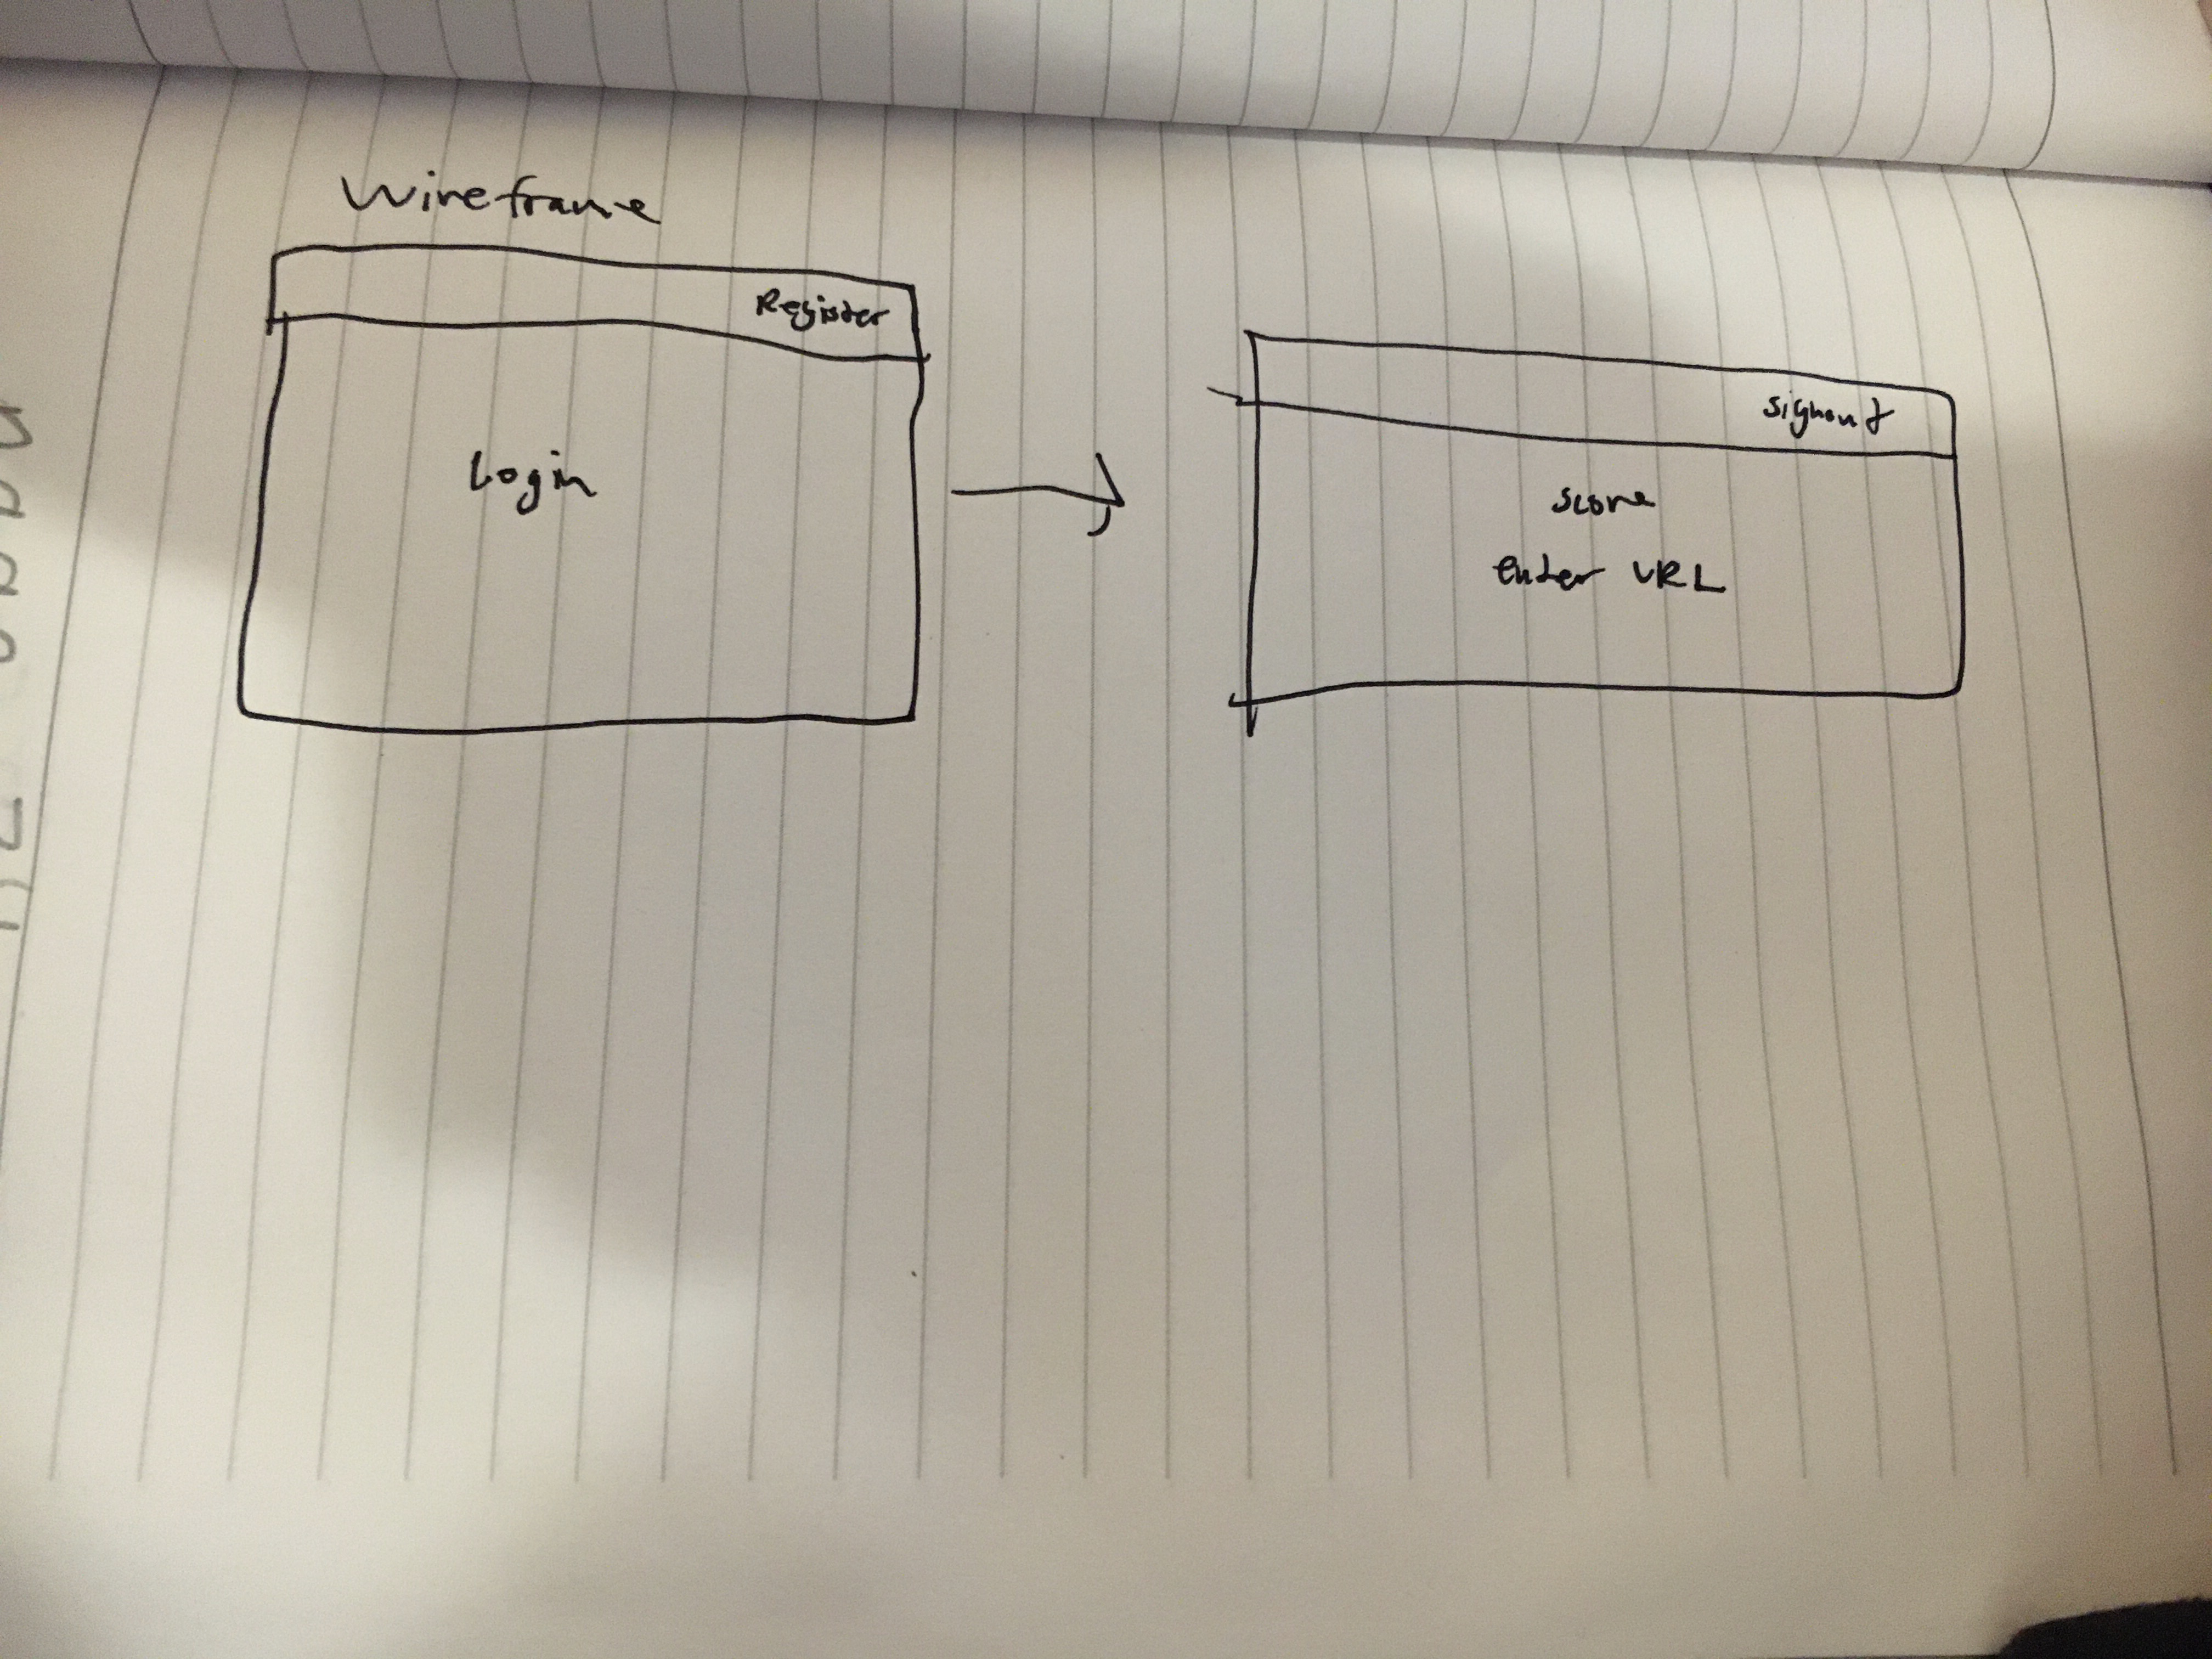 Wireframe
Register
Login
signout
score
enter URL